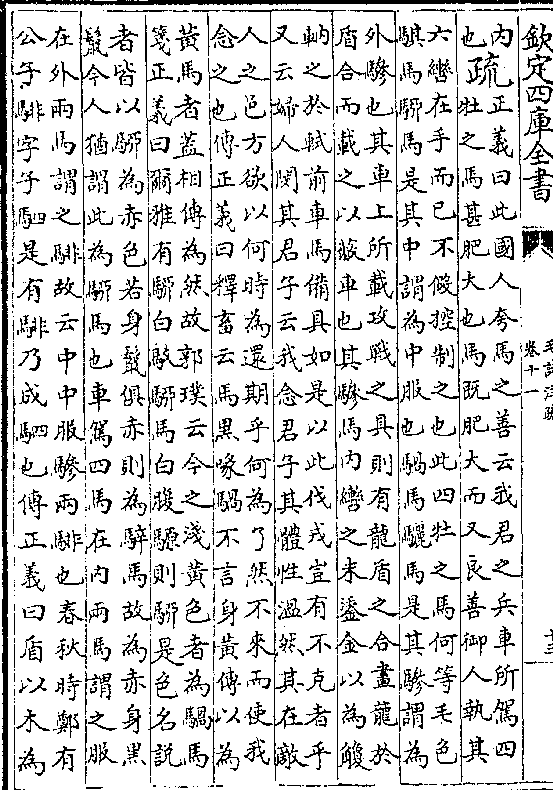 欽定四庫全書
毛詩注疏
卷十一
十三
内
也
疏
正義曰此國人夸馬之善云我君之兵車所駕四
牡之馬甚肥大也馬既肥大而又良善御人執其
六轡在手而已不假控制之也此四牡之馬何等毛色
騏馬騮馬是其中謂為中服也騧馬驪馬是其驂謂為
外驂也其車上所載攻戰之具則有龍盾之合畫龍於
盾合而載之以蔽車也其驂馬内轡之末鋈金以為觼
軜之於軾前車馬備具如是以此伐戎豈有不克者乎
又云婦人閔其君子云我念君子其體性溫然其在敵
人之邑方欲以何時為還期乎何為了然不來而使我
念之也傳正義曰釋畜云馬黒喙騧不言身黄傳以為
黄馬者蓋相傳為然故郭璞云今之淺黄色者為騧馬
箋正義曰爾雅有騮白駁騮馬白腹騵則騮是色名説
者皆以騮為赤色若身鬛俱赤則為騂馬故為赤身黒
鬛今人猶謂此為騮馬也車駕四馬在内兩馬謂之服
在外兩馬謂之騑故云中中服驂兩騑也春秋時鄭有
公子騑字子駟是有騑乃成駟也傳正義曰盾以木為